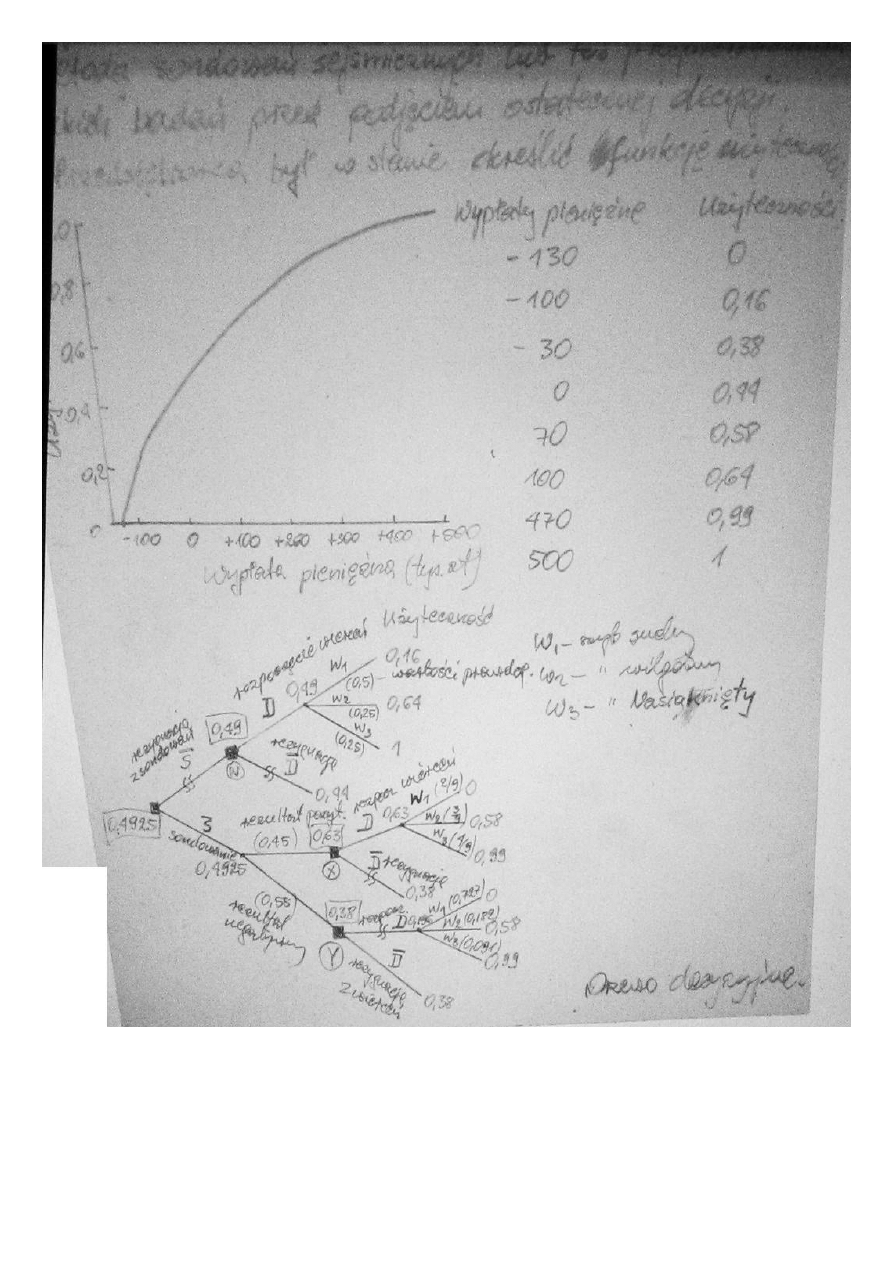 sondowań sejsmicznych
badań przed podjęciem ostatecznej decyzji.
był w stanie określić funkcję użyteczności
Wypłaty pieniężne Użyteczności
- 130 0
- 100 0,16
- 30 0,38
0 0,44
70 0,58
100 0,64
470 0,99
500 1
0,8
0,6
0,4
0,2
0
-100 0 +100 +200 +300 +400 +500
Wypłata pieniężna (tys. zł)
Użyteczność
W1 – szyb suchy
W2 – " wilgotny
W3 – " Nasiąknięty
rozpoczęcie wierceń
W1
0,16
(0,5) – wartości prawdop.
0,49
D
W2
(0,25)
0,64
W3
(0,25)
1
rezygnacja
z sondowań
S
0,49
N
rezygnacja
D
0,44
0,4925
S
sondowanie
0,4925
rezultat pozyt.
(0,45)
0,63
X
rozpocz. wierceń
D
0,63
W1 (2/9)
0
W2 (3/9)
0,58
W3 (4/9)
0,99
D rezygnacja
0,38
(0,55)
rezultat
negatywny
0,38
Y
rozpocz.
D
W1 (0,727)
0
W2 (0,182)
0,58
W3 (0,091)
0,99
D
rezygnacja
z wierceń
0,38
Drzewo decyzyjne.